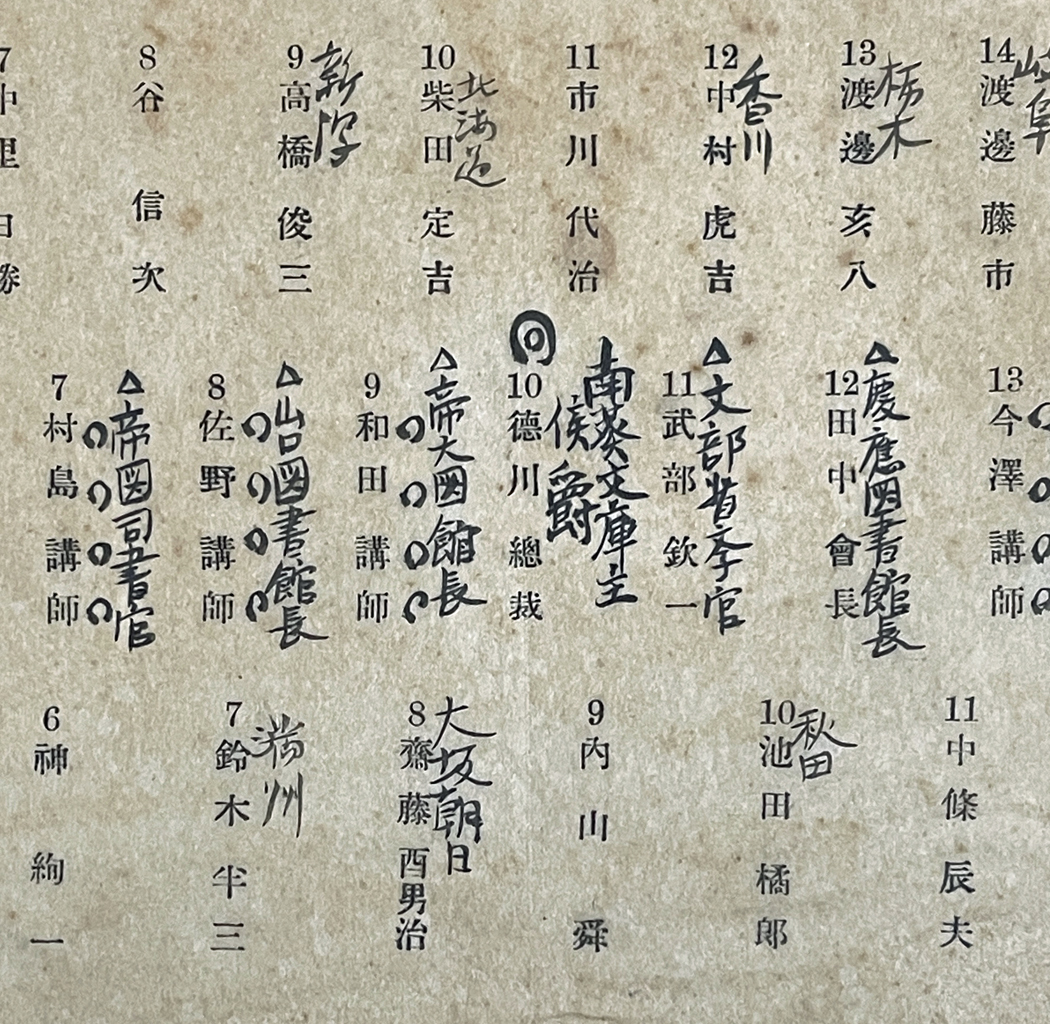 岐阜
14 渡邊藤市
栃木
13 渡邊亥八
香川
12 中村虎吉
11 市川代治
北海道
10 柴田定吉
新潟
9 高橋俊三
8 谷信次
7 中里日勝
13 今澤講師
△慶應図書館長
12 田中會長
△文部省 官
11 武部欽一
南葵文庫主
侯爵
10 德川總裁
△帝大図館長
9 和田講師
△山口図書館長
8 佐野講師
△帝図司書官
7 村島講師
11 中條辰夫
秋田
10 池田橘郎
9 內山舜
大坂朝日
8 齋藤酉男治
満州
7 鈴木半三
6 神絢一